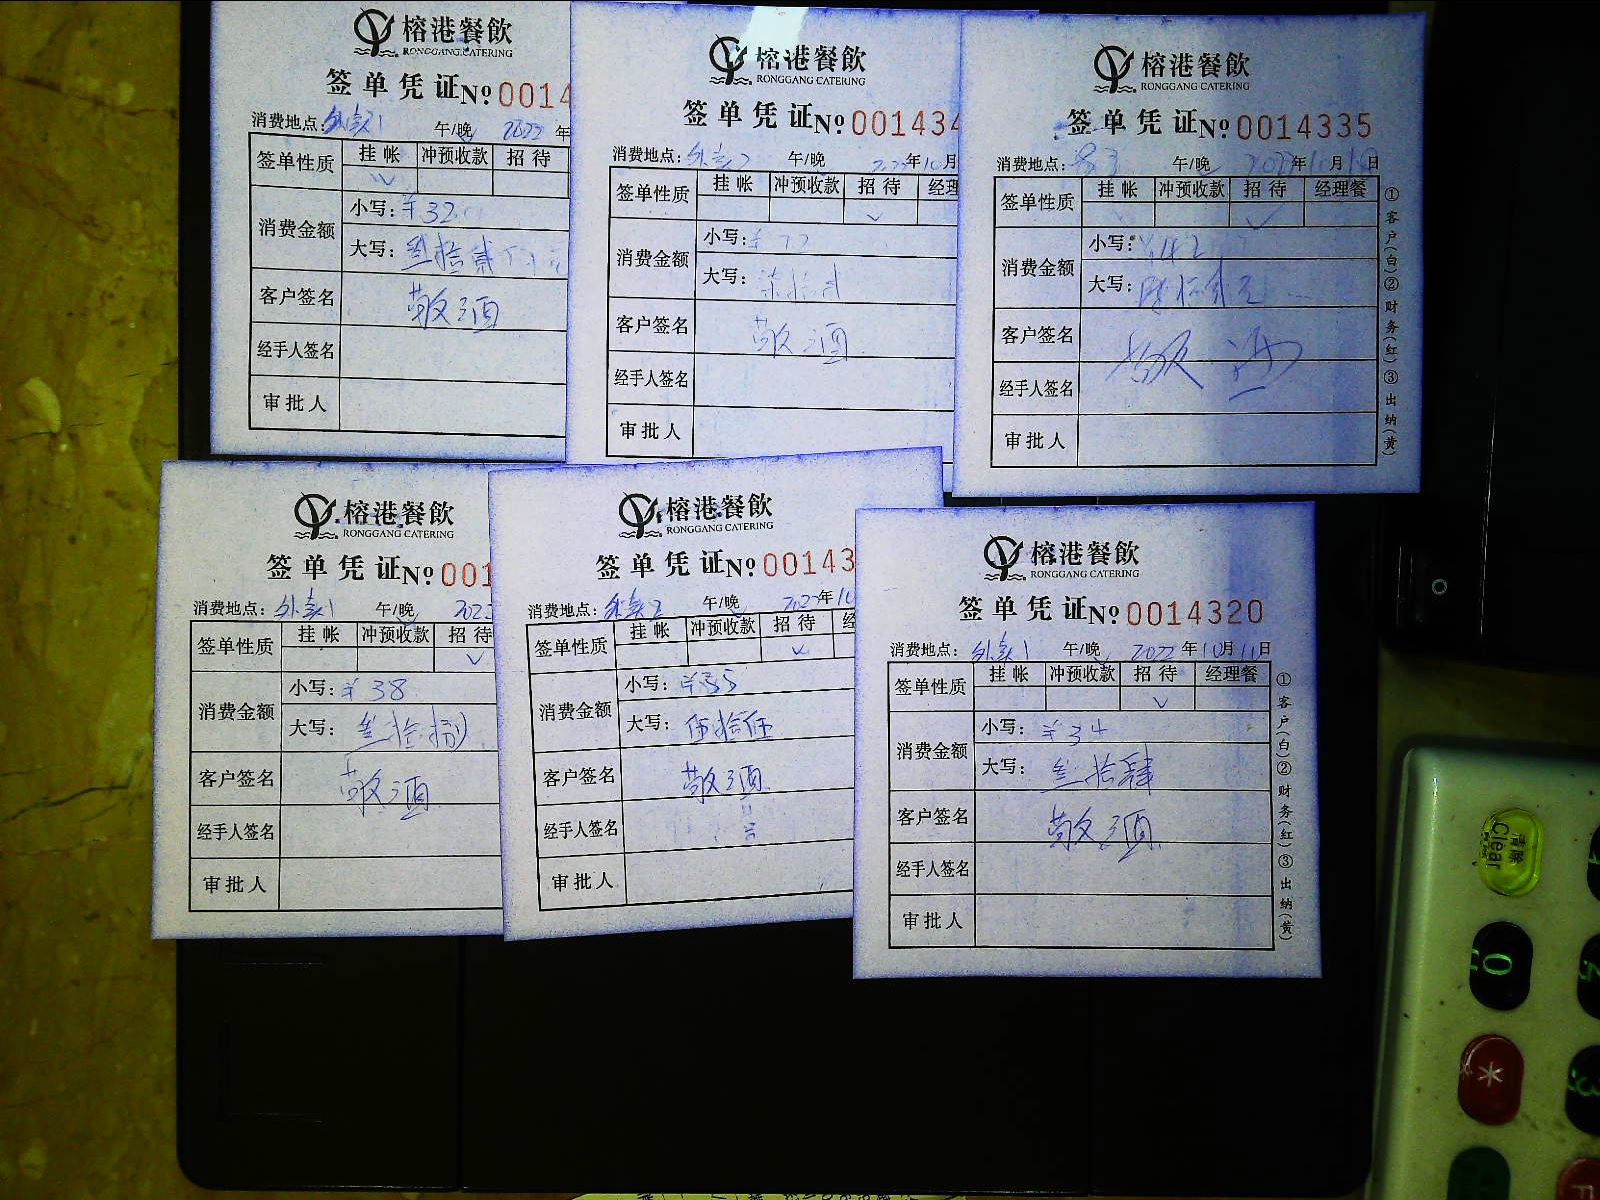 榕港餐飲
RONGGANG CATERING
签单凭证 No 0014
消费地点：外卖1 午/晚 2022 年
签单性质 挂帐 冲预收款 招待
消费金额 小写：¥32
大写：叁拾贰
客户签名
经手人签名
审批人
榕港餐飲
RONGGANG CATERING
签单凭证 No 001434
消费地点：外卖2 午/晚 年10月
签单性质 挂帐 冲预收款 招待 经理
消费金额 小写：¥72
大写：柒拾贰
客户签名
经手人签名
审批人
榕港餐飲
RONGGANG CATERING
签单凭证 No 0014335
消费地点： 午/晚 2022年10月 日
签单性质 挂帐 冲预收款 招待 经理餐
消费金额 小写：
大写：
客户签名
经手人签名
审批人
①客户(白)②财务(红)③出纳(黄)
榕港餐飲
RONGGANG CATERING
签单凭证 No 001
消费地点：外卖1 午/晚 2022
签单性质 挂帐 冲预收款 招待
消费金额 小写：¥38
大写：叁拾捌
客户签名
经手人签名
审批人
榕港餐飲
RONGGANG CATERING
签单凭证 No 00143
消费地点：外卖2 午/晚 2022年10
签单性质 挂帐 冲预收款 招待 经
消费金额 小写：¥55
大写：伍拾伍
客户签名
经手人签名
审批人
榕港餐飲
RONGGANG CATERING
签单凭证 No 0014320
消费地点：外卖1 午/晚 2022年10月11日
签单性质 挂帐 冲预收款 招待 经理餐
消费金额 小写：¥34
大写：叁拾肆
客户签名
经手人签名
审批人
①客户(白)②财务(红)③出纳(黄)
清除
Clear
0
*